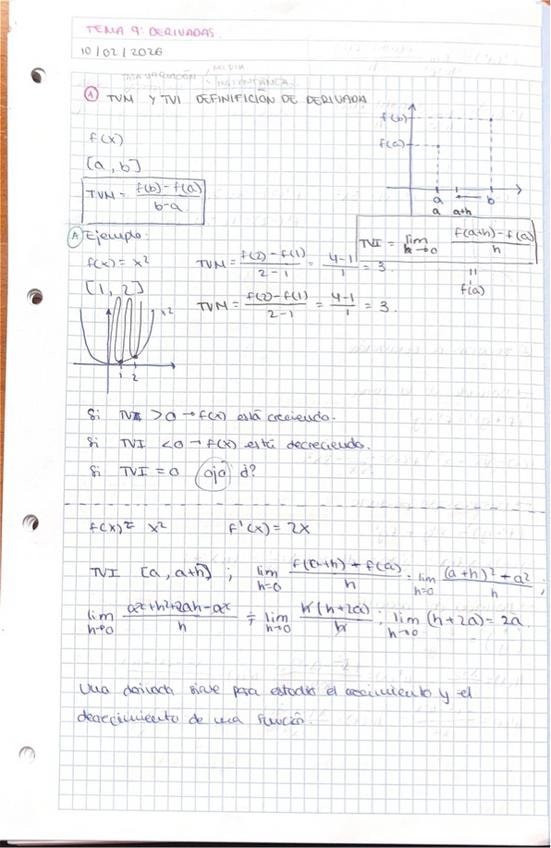 TEMA 9: DERIVADAS.
10/02/2026
TASA VARIACIÓN / MEDIA
INSTANTÁNEA
① TVM Y TVI DEFINIFICIÓN DE DERIVADA
f(b)
f(a)
a b
a a+h
f(x)
[a, b]
TVM = f(b)-f(a) / b-a
TVI = lim h→0 f(a+h)-f(a) / h
=
f'(a)
Ejemplo:
f(x) = x² TVM = f(2)-f(1) / 2-1 = 4-1 / 1 = 3.
[1, 2] TVM = f(2)-f(1) / 2-1 = 4-1 / 1 = 3.
x²
1 2
Si TVI > 0 → f(x) está creciendo.
Si TVI < 0 → f(x) está decreciendo.
Si TVI = 0 ojo d?
f(x) = x² F'(x) = 2x
TVI [a, a+h] ; lim h=0 f(a+h)+f(a) / h = lim h=0 (a+h)²+a² / h ;
lim h→0 a²+h²+2ah-a² / h = lim h→0 h(h+2a) / h ; lim h→0 (h+2a) = 2a
Una derivada sirve para estudiar el crecimiento y el
decrecimiento de una función.